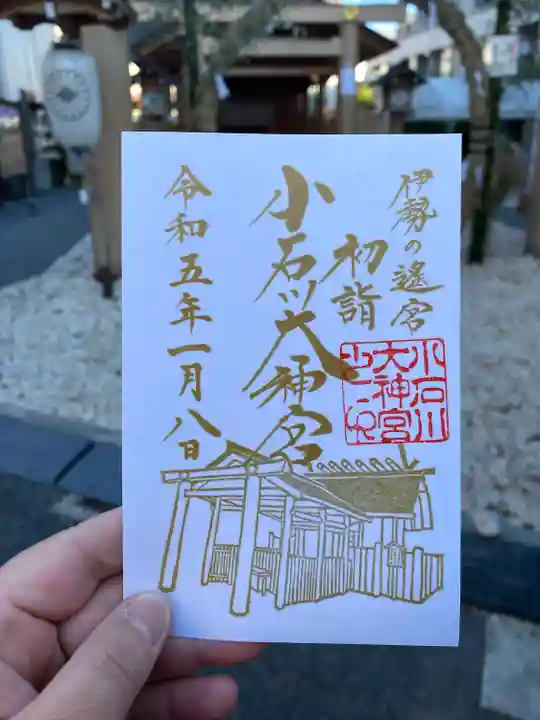 伊勢の遥宮
初詣
小石川大神宮
令和五年一月八日
小石川
大神宮